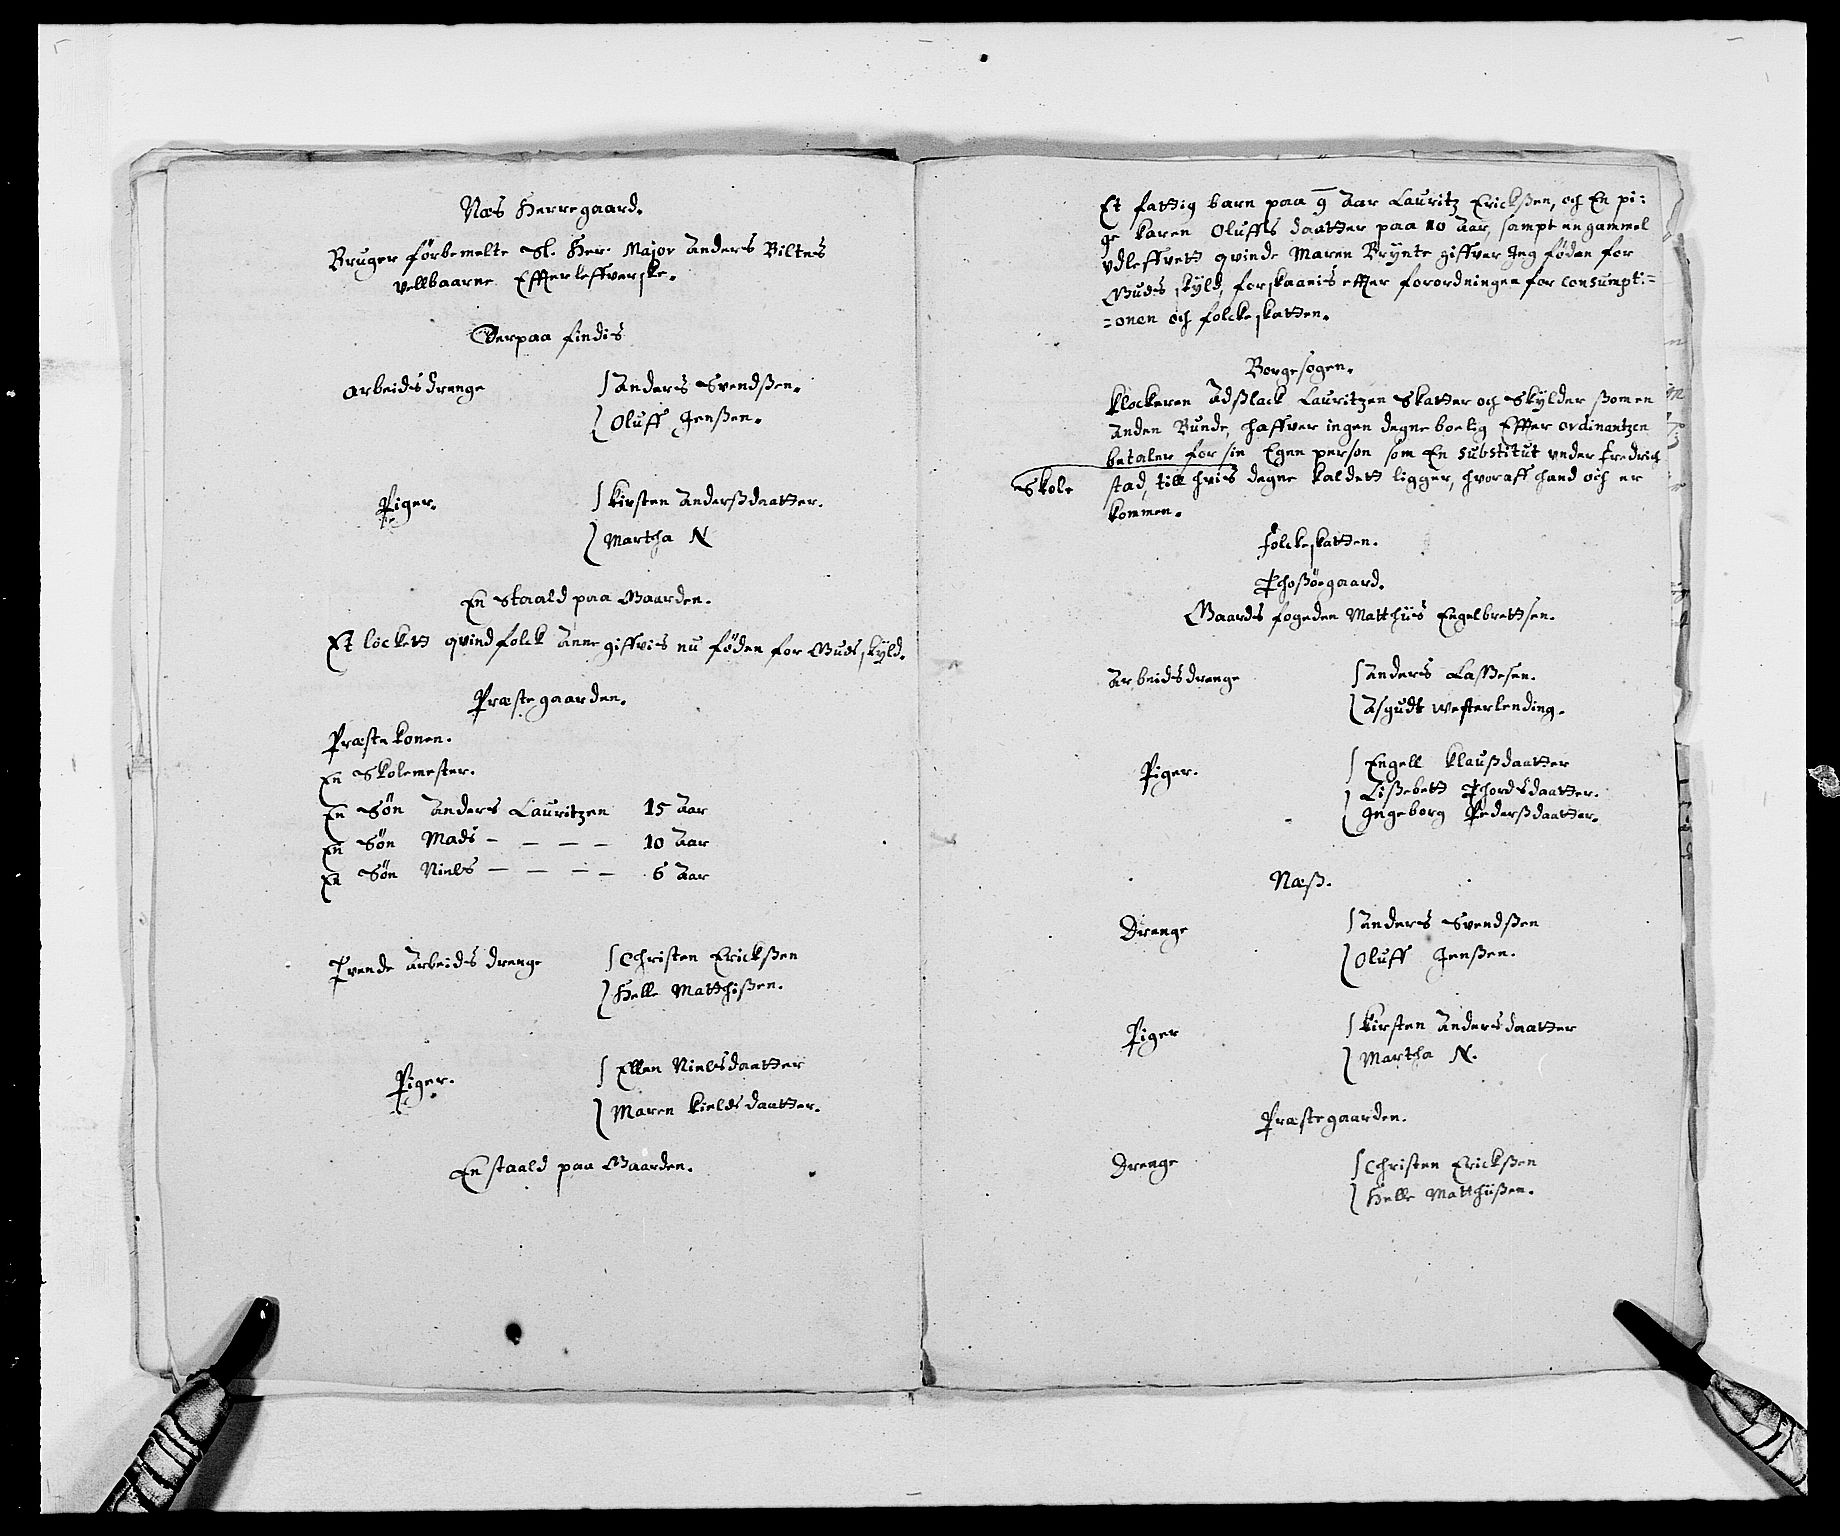 Næs Herregaard.
Bruger förbemelte Sl. Her. Major Anders Biltes
Vellbaarne Effterleffverske.
Derpaa findis
Arbeidsdrenge Anders Svendßen.
Oluff Jenßen.
Piger. Kirsten Anderßdaatter.
Martha N
En Staald paa Gaarden.
Et lockett qvindfolck Anne giffvis nu föden for Guds skyld.
Præstegaarden.
Præstekonen.
En Skolemester.
En Sön Anders Lauritzen 15 Aar
En Sön Mads – – – – 10 Aar
En Sön Niels – – – – 6 Aar
Tvende Arbeids drenge Christen Erickßen
Helle Matthißen.
Piger. Ellen Nielsdaatter
Maren Kieldsdaatter.
En staald paa Gaarden.
Et fattig barn paa 9 Aar Lauritz Erickßen, och En pi:
ge Karen Oluffs daatter paa 10 Aar, sampt en gammel
vdleffvett qvinde Maren Brynte giffver Jeg föden for
Guds skyld, forskaanis effter forordningen for Consumpti=
=onen och folckeskatten.
Borgesogen.
Klockeren Adßlack Lauritzen Skatter och Skylder ßom en
Anden Bunde, haffver ingen degneboelig Effter ordinantzen
betaler for sin Egen person som En substitut vnder Fredrich
Skole stad, till hvis degne kaldett ligger, hvoraff hand och er
kommen.
Folckeskatten.
Thoßöegaard.
Gaards fogeden Matthiis Engelbrettsen.
Arbeidsdrenge Anders Laßesen.
Asgudt Westerlending.
Piger. Engell Klaußdaatter
Lißebett Thordsdaatter.
Ingeborg Pederßdaatter.
Næß.
Drenge Anders Svendßen
Oluff Jenßen.
Piger Kirsten Andersdaatter
Martha N.
Præstegaarden.
Drenge Christen Erickßen
Helle Matthiißen.